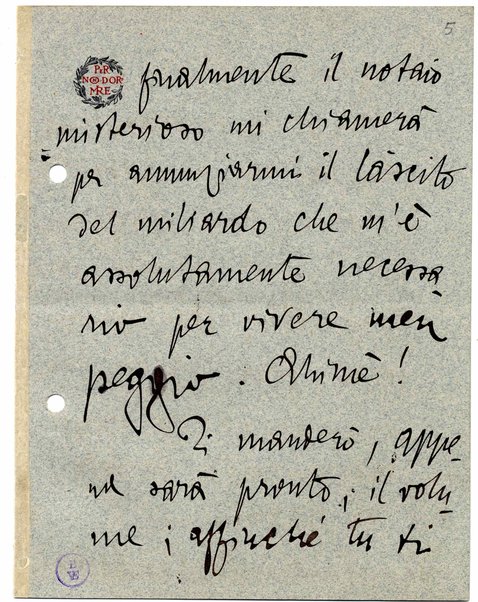 5
PER
NON DOR-
MIRE
finalmente il notaio
misterioso mi chiamerà
per annunziarmi il làscito
del miliardo che m'è
assolutamente necessa
rio per vivere men
peggio. Ohimè!
Ti manderò, appe-
na sarà pronto, il volu-
me; affinché tu ti